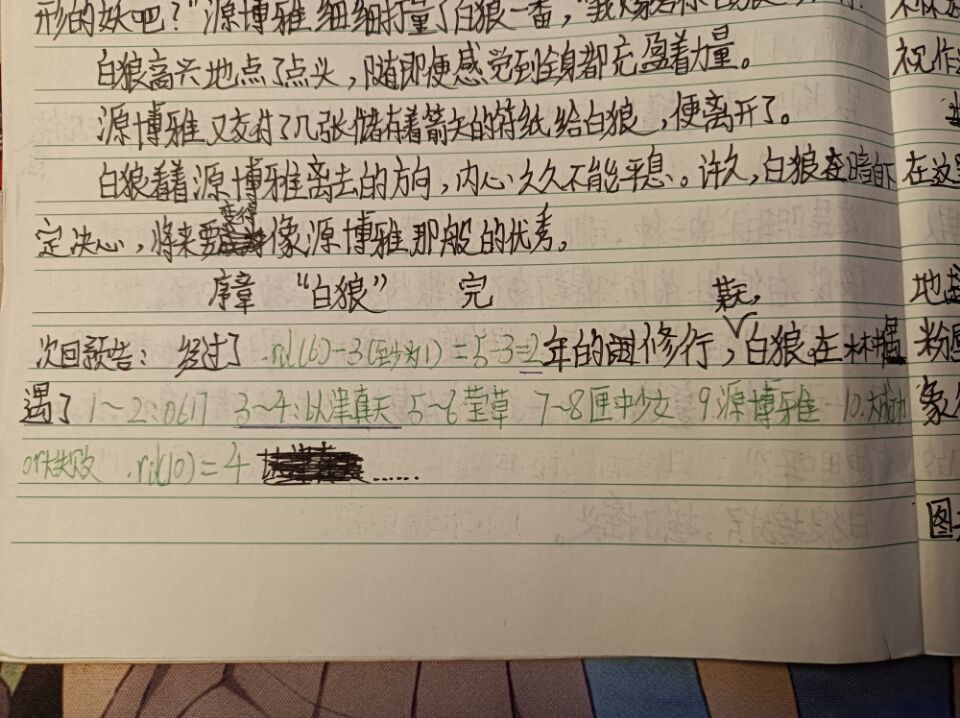 形的妖吧？”源博雅细细打量了白狼一番，“我
白狼高兴地点了点头，随即便感觉到全身都充盈着力量。
源博雅又交付了几张储存着箭矢的符纸给白狼，便离开了。
白狼看着源博雅离去的方向，内心久久不能平息。许久，白狼在暗下
定决心，将来要变得像源博雅那般的优秀。
序章 “白狼” 完
次回预告：经过了 .rd(6)-3(至少为1)=5-3=2年的修行，某天，白狼在林中
遇了 1~2:0617 3~4:以津真天 5~6萤草 7~8匣中少女 9.源博雅 10.大成功
or大失败 .rd(10)=4 ……
视作
在这
地
粉
象
图